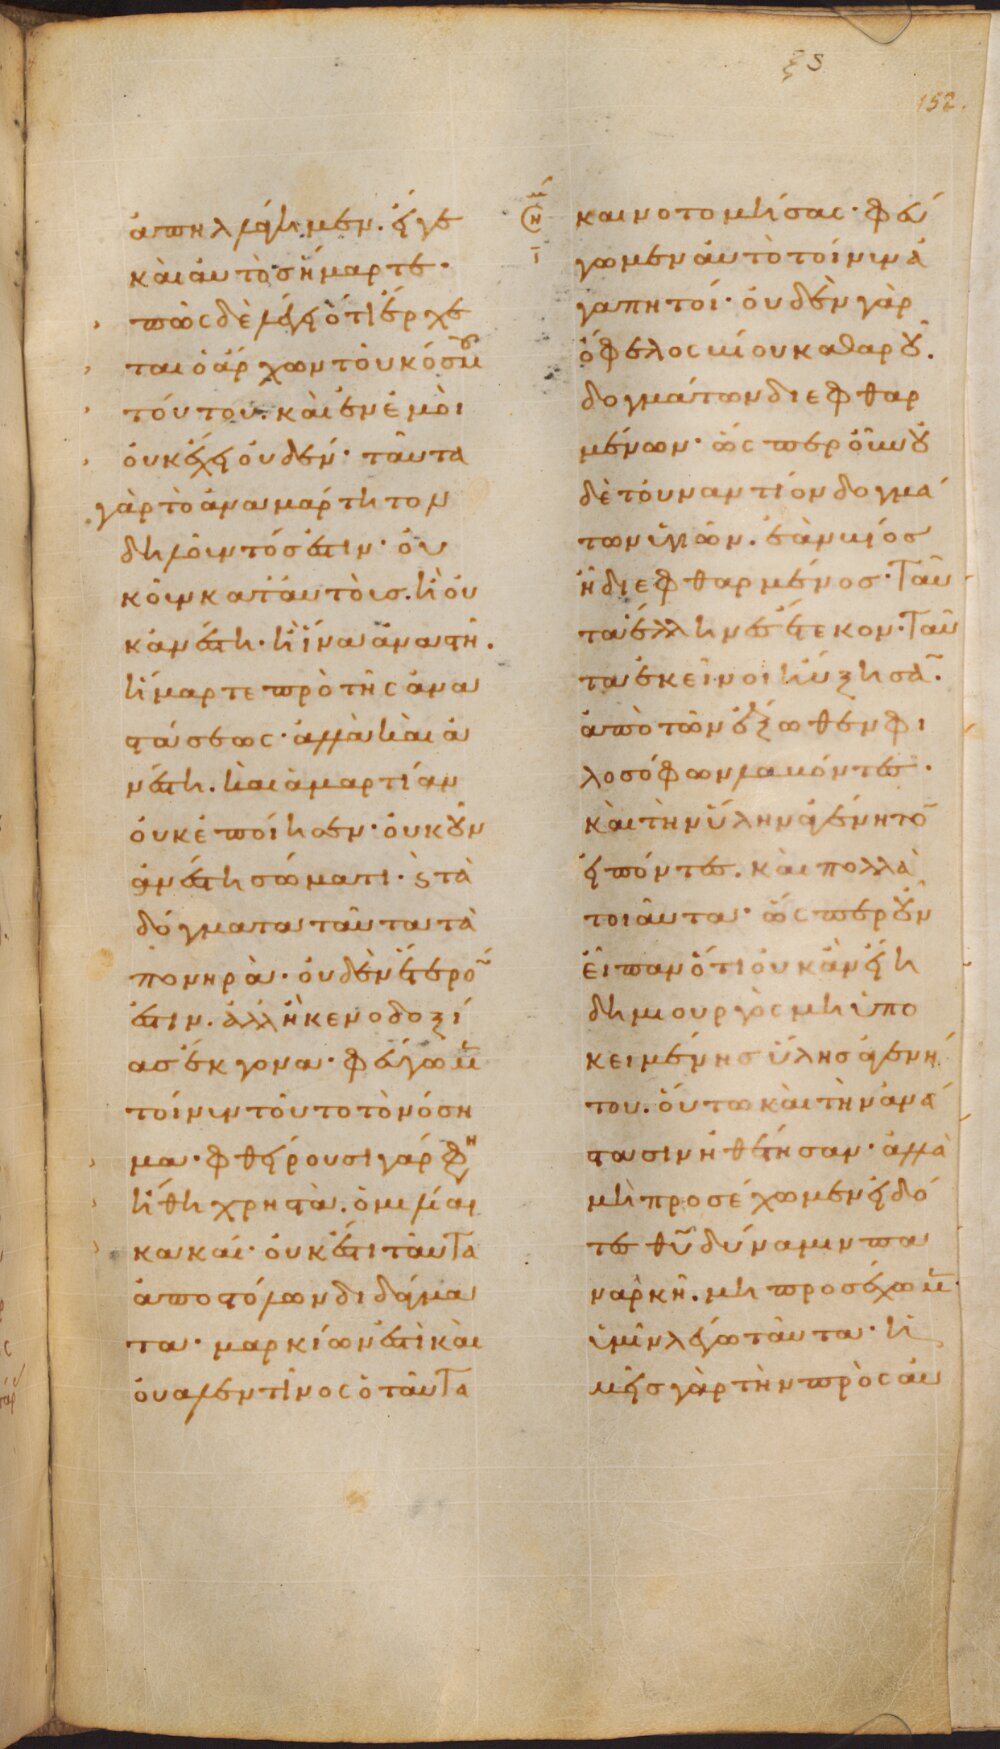 ξς
152.
ἀπηλλάγημεν. εἴγε
καὶ αὐτὸς ἥμαρτε·
πῶς δὲ λέγει ὅτι ἔρχε
ται ὁ ἄρχων τοῦ κόσμου
τούτου. καὶ ἐν ἐμοὶ
οὐκ ἔχει οὐδέν· ταῦτα
γὰρ τὸ ἀναμάρτητον
δηλοῦντός ἐστιν· οὐ
κοῦν κατ' αὐτοὺς. ἢ οὐ
κ ἀνέστη· ἢ ἵνα ἀναστῆ.
ἥμαρτε πρὸ τῆς ἀνα
στάσεως· ἀλλὰ καὶ ἀ
νέστη. καὶ ἁμαρτίαν
οὐκ ἐποίησεν· οὐκοῦν
ἀνέστη σώματι· ϛ τὰ
δόγματα ταῦτα τὰ
πονηρὰ· οὐδὲν ἕτερό
ἐστιν. ἀλλ' ἢ κενοδοξί
ας ἔκγονα· φεύγωμεν
τοίνυν τοῦτο τὸ νόση
μα· φθείρουσι γάρ φη
ἤθη χρηστὰ. ὁμιλίαι
κακαί· οὐκ ἔστι ταῦτα
ἀποστόλων διδάγμα
τα· μαρκίων ἐστὶ καὶ
οὐαλεντῖνος ὁ ταῦτα
καινοτομήσας· φεύ
γωμεν αὐτὸ τοίνυν ἀ
γαπητοί· οὐδὲν γὰρ
ὄφελος βίου καθαροῦ.
δογμάτων διεφθαρ
μένων· ὥσπερ οὖν οὐ
δὲ τοὐναντίον δογμά
των ὑγιῶν. ἐὰν βίος
ἦ διεφθαρμένος· ταῦ
τα ἕλληνες ἔτεκον· ταῦ
τα ἐκεῖνοι ηὔξησαν.
ἀπὸ τῶν ἔξωθεν φι
λοσόφων λαβόντες·
καὶ τὴν ὕλην ἀγένητον
εἰπόντες. καὶ πολλὰ
τοιαῦτα· ὥσπερ οὖν
εἶπαν ὅτι οὐκ ἂν εἴη
δημιουργὸς μὴ ὑπο
κειμένης ὕλης ἀγενή
του. οὕτω καὶ τὴν ἀνά
στασιν ἠθέτησαν· ἀλλὰ
μὴ προσέχωμεν εἰδό
τες θῦ δύναμιν πα
ναρκῆ. μὴ προσέχωμεν·
ὑμῖν λέγω ταῦτα· ἡ
μεῖς γὰρ τὴν πρὸς αὐ